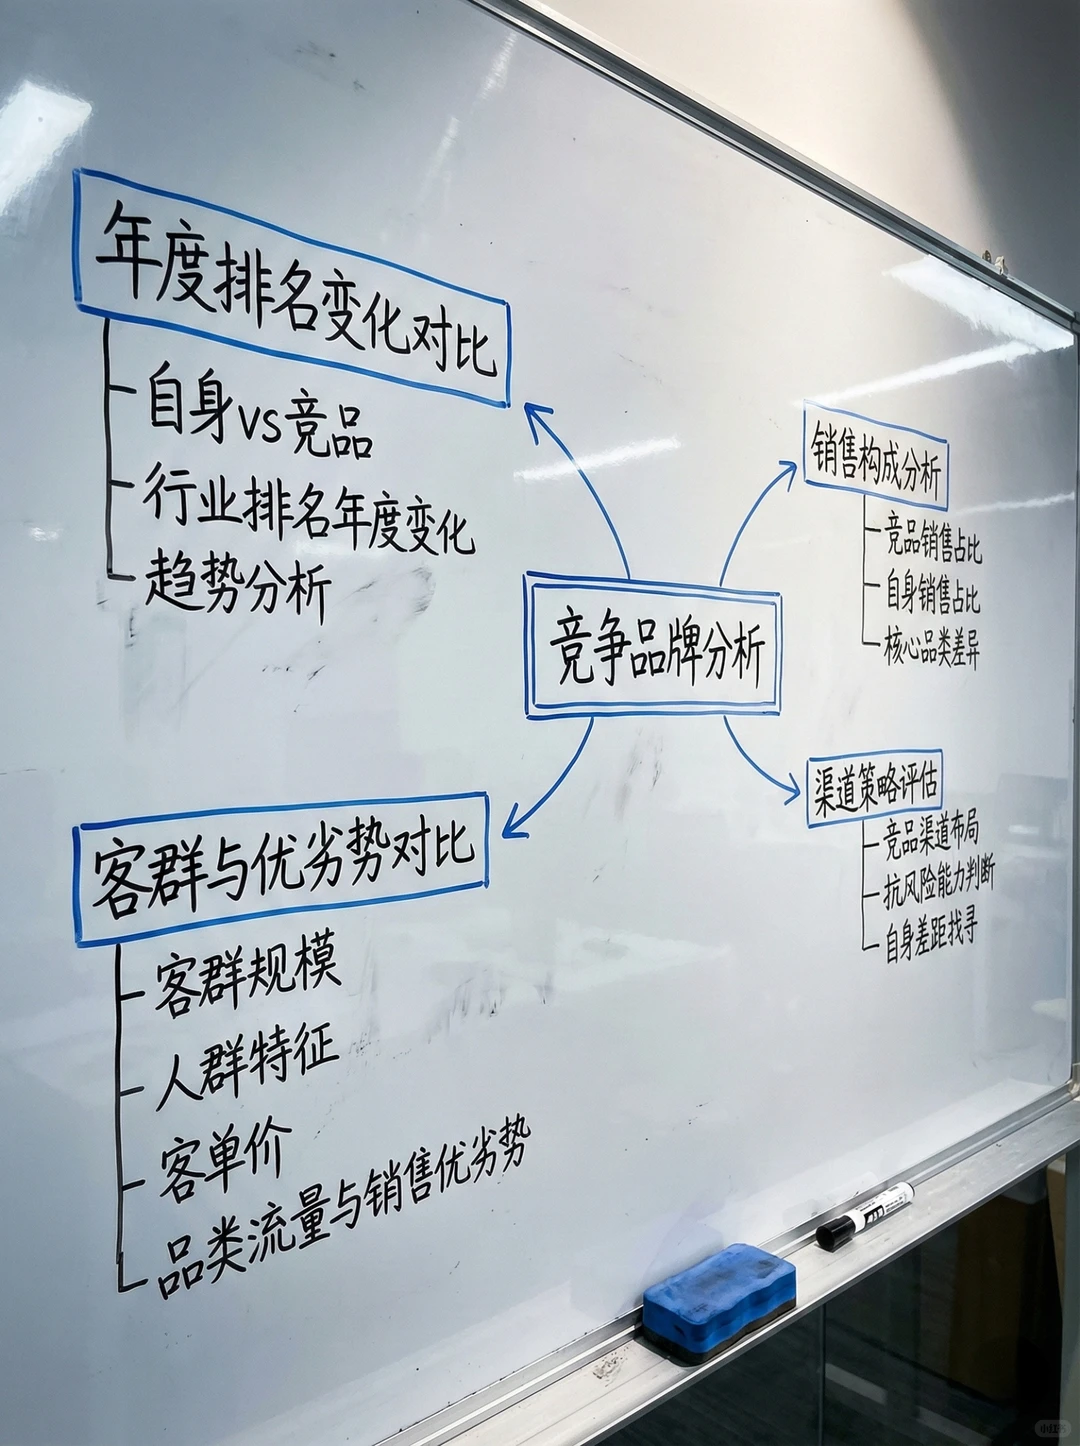 年度排名变化对比
自身vs竞品
行业排名年度变化
趋势分析
销售构成分析
竞品销售占比
自身销售占比
核心品类差异
竞争品牌分析
客群与优劣势对比
客群规模
人群特征
客单价
品类流量与销售优劣势
渠道策略评估
竞品渠道布局
抗风险能力判断
自身差距找寻